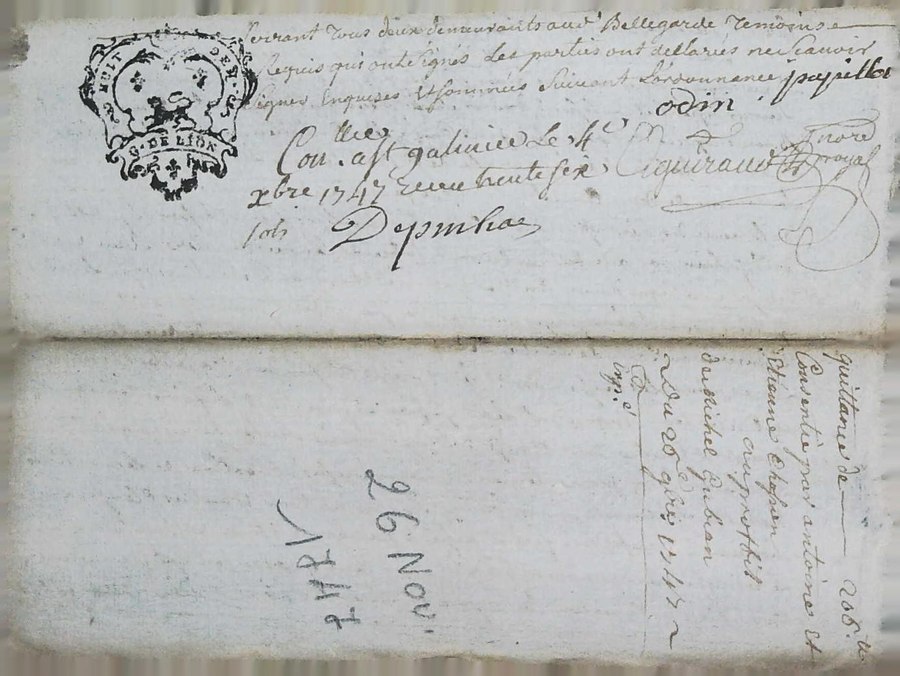 HUIT DEN.
G. DE LION
Serrant tous deux demeurants aud. Bellegarde temoins
Requis qui ont signés Les parties ont dellarés ne scauoir
signer Enquises et sommées suivant Lordonnance papilla
odin
Con. le 4e
xbre 1747 receu trente six
guiraud nore
royal
sols
quittance de 206 ll
Consentie par antoine et
Etienne Chapon
au proffit
de Michel
Du 26e 9bre 1747
Exp.
26 Nov.
1747